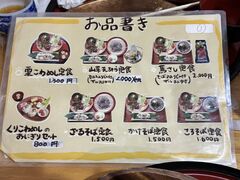 お品書き
栗こわめし定食
1,300円
山菜天ぷら定食
2,000円
馬さし定食
2,300円
くりこわめしの
おにぎりセット
800円
ざるそば定食
1,500円
かけそば定食
1,500円
ころそば定食
1,600円